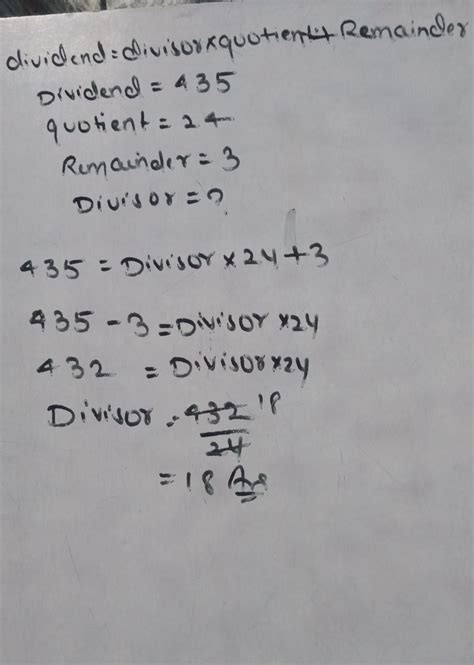 dividend = divisor × quotient + Remainder
Dividend = 435
quotient = 24
Remainder = 3
Divisor = ?
435 = Divisor × 24 + 3
435 - 3 = Divisor × 24
432 = Divisor × 24
Divisor = 432 18
24
= 18 Ans